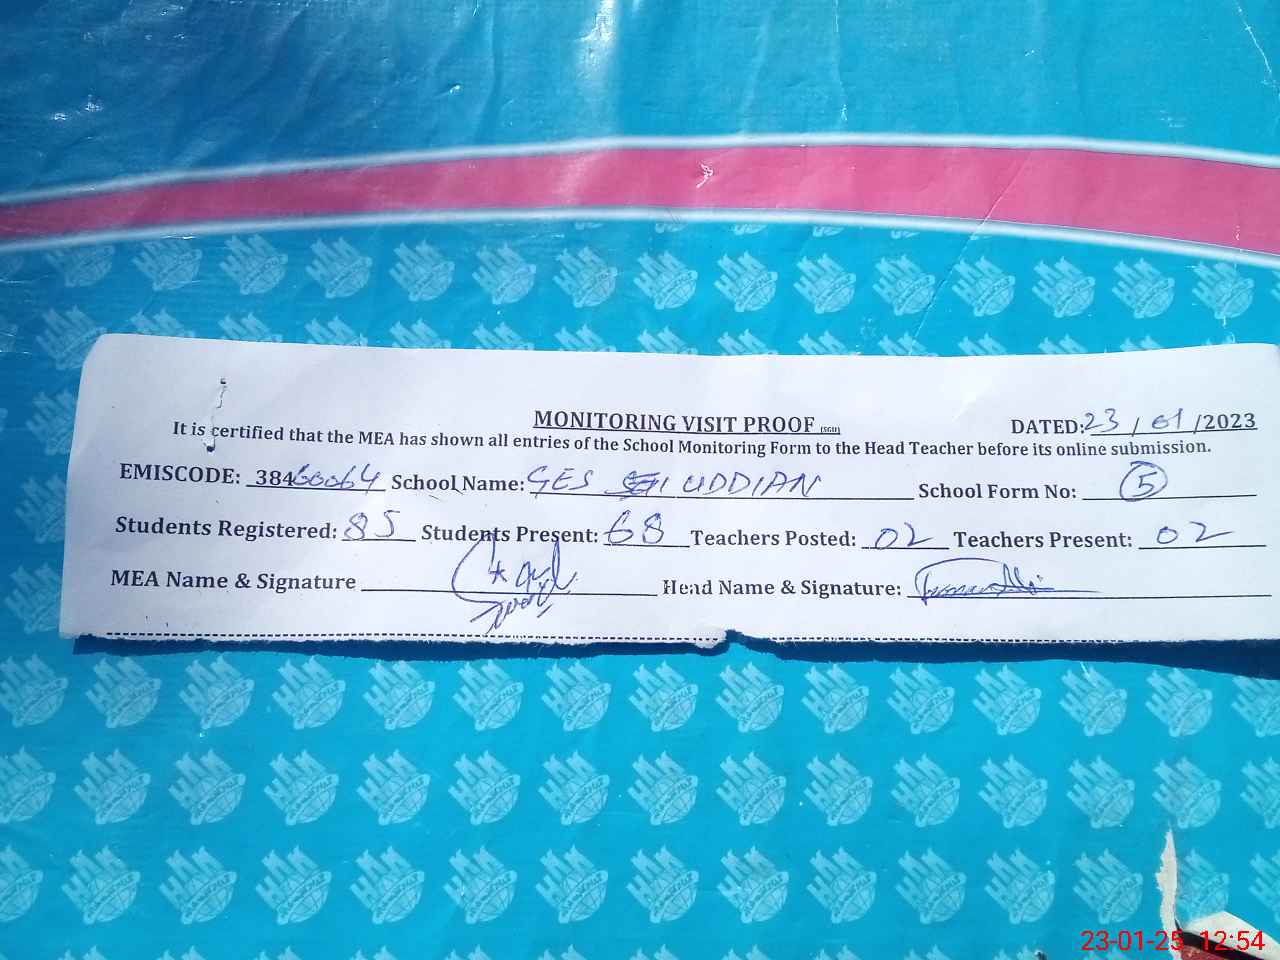 MONITORING VISIT PROOF (SGU) DATED: 23 / 01 /2023
It is certified that the MEA has shown all entries of the School Monitoring Form to the Head Teacher before its online submission.
EMISCODE: 38460064 School Name: GES UDDIAN School Form No: 5
Students Registered: 85 Students Present: 68 Teachers Posted: 02 Teachers Present: 02
MEA Name & Signature Head Name & Signature:
23-01-25 12:54